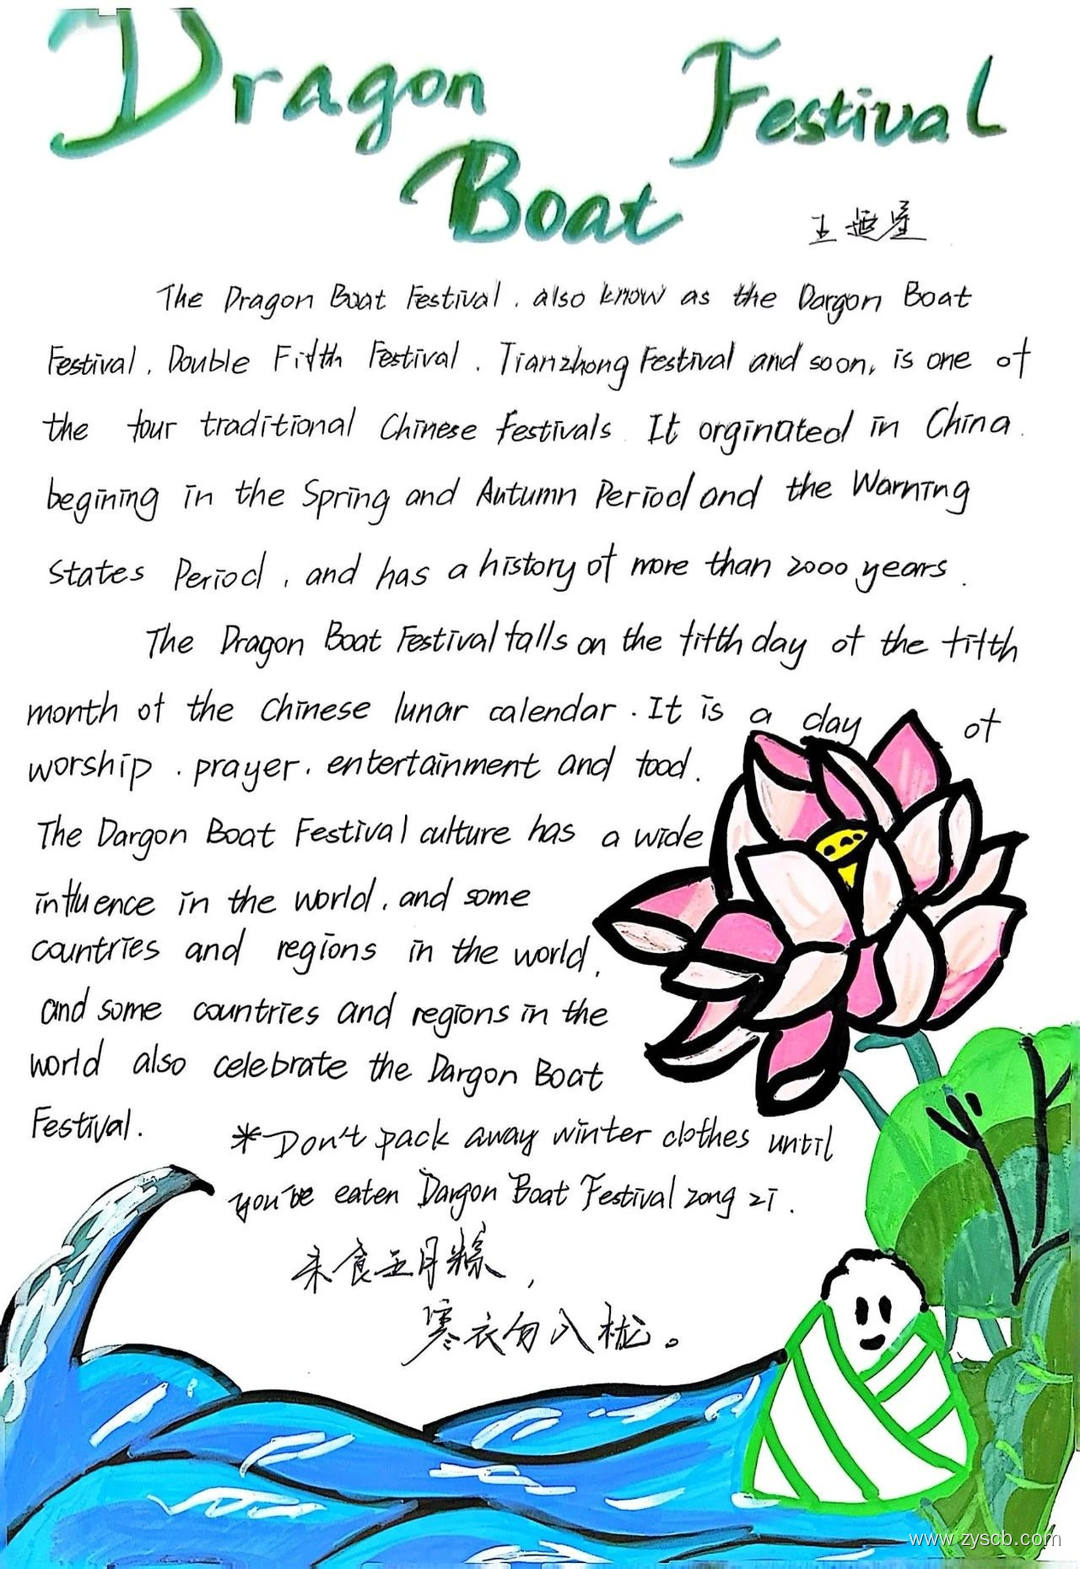 Dragon Boat Festival
The Dragon Boat Festival, also know as the Dargon Boat
Festival, Double Fifth Festival, Tianzhong Festival and soon, is one of
the four traditional Chinese festivals It orginated in China.
begining in the Spring and Autumn Period and the Warning
States Period, and has a history of more than 2000 years.
The Dragon Boat Festival falls on the fifth day of the fifth
month of the Chinese lunar calendar. It is a day of
worship, prayer, entertainment and food.
The Dargon Boat Festival culture has a wide
influence in the world, and some
countries and regions in the world,
and some countries and regions in the
world also celebrate the Dargon Boat
Festival.
*Don't pack away winter clothes until
you've eaten Dargon Boat Festival zong zi.
未食五月粽,
寒衣勿入栊。
www.zyscb.com